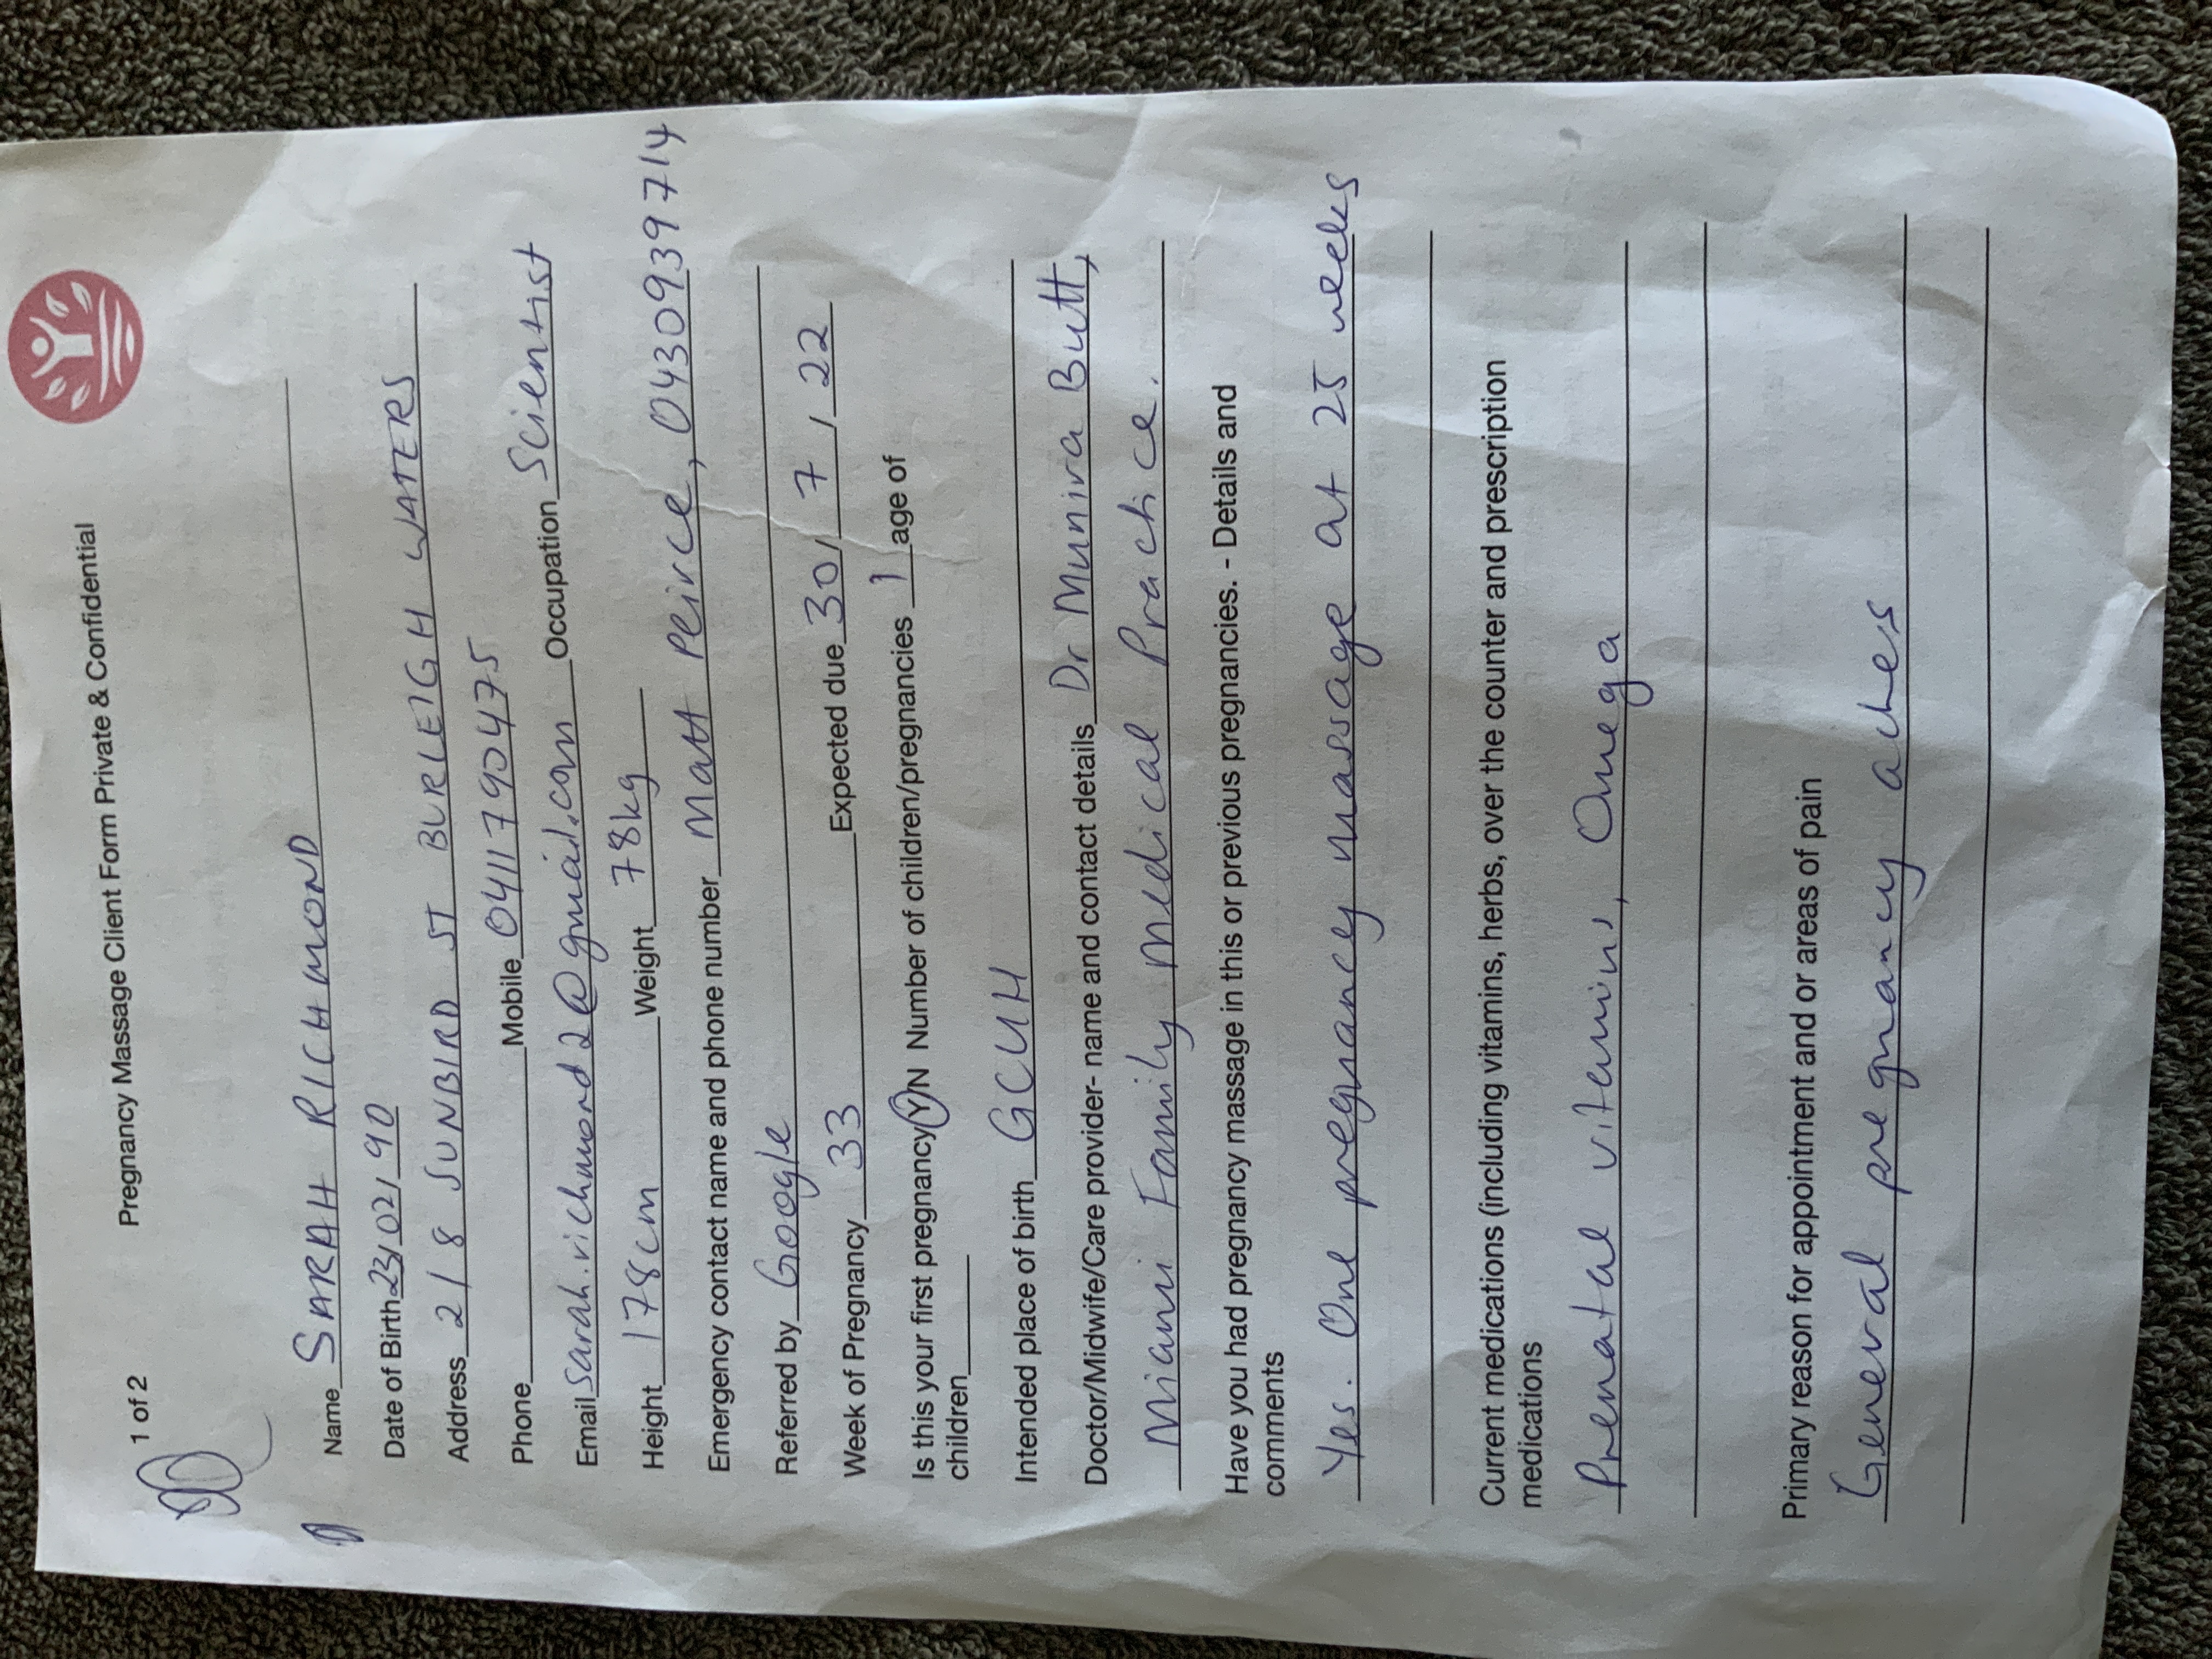 1 of 2 Pregnancy Massage Client Form Private & Confidential
Name SARAH RICHMOND
Date of Birth 23/02/90
Address 2/8 SUNBIRD ST BURLEIGH WATERS
Phone Mobile 0411790475
Email sarah.richmond2@gmail.com Occupation Scientist
Height 178cm Weight 78kg
Emergency contact name and phone number Matt Peirce, 0430939714
Referred by Google
Week of Pregnancy 33 Expected due 30/7/22
Is this your first pregnancy Y/N Number of children/pregnancies 1 age of
children
Intended place of birth GCUH
Doctor/Midwife/Care provider- name and contact details Dr Munira Butt,
Miami Family Medical Practice.
Have you had pregnancy massage in this or previous pregnancies. - Details and
comments
Yes. One pregnancy massage at 25 weeks
Current medications (including vitamins, herbs, over the counter and prescription
medications
Prenatal vitamins, Omega
Primary reason for appointment and or areas of pain
General pregnancy aches